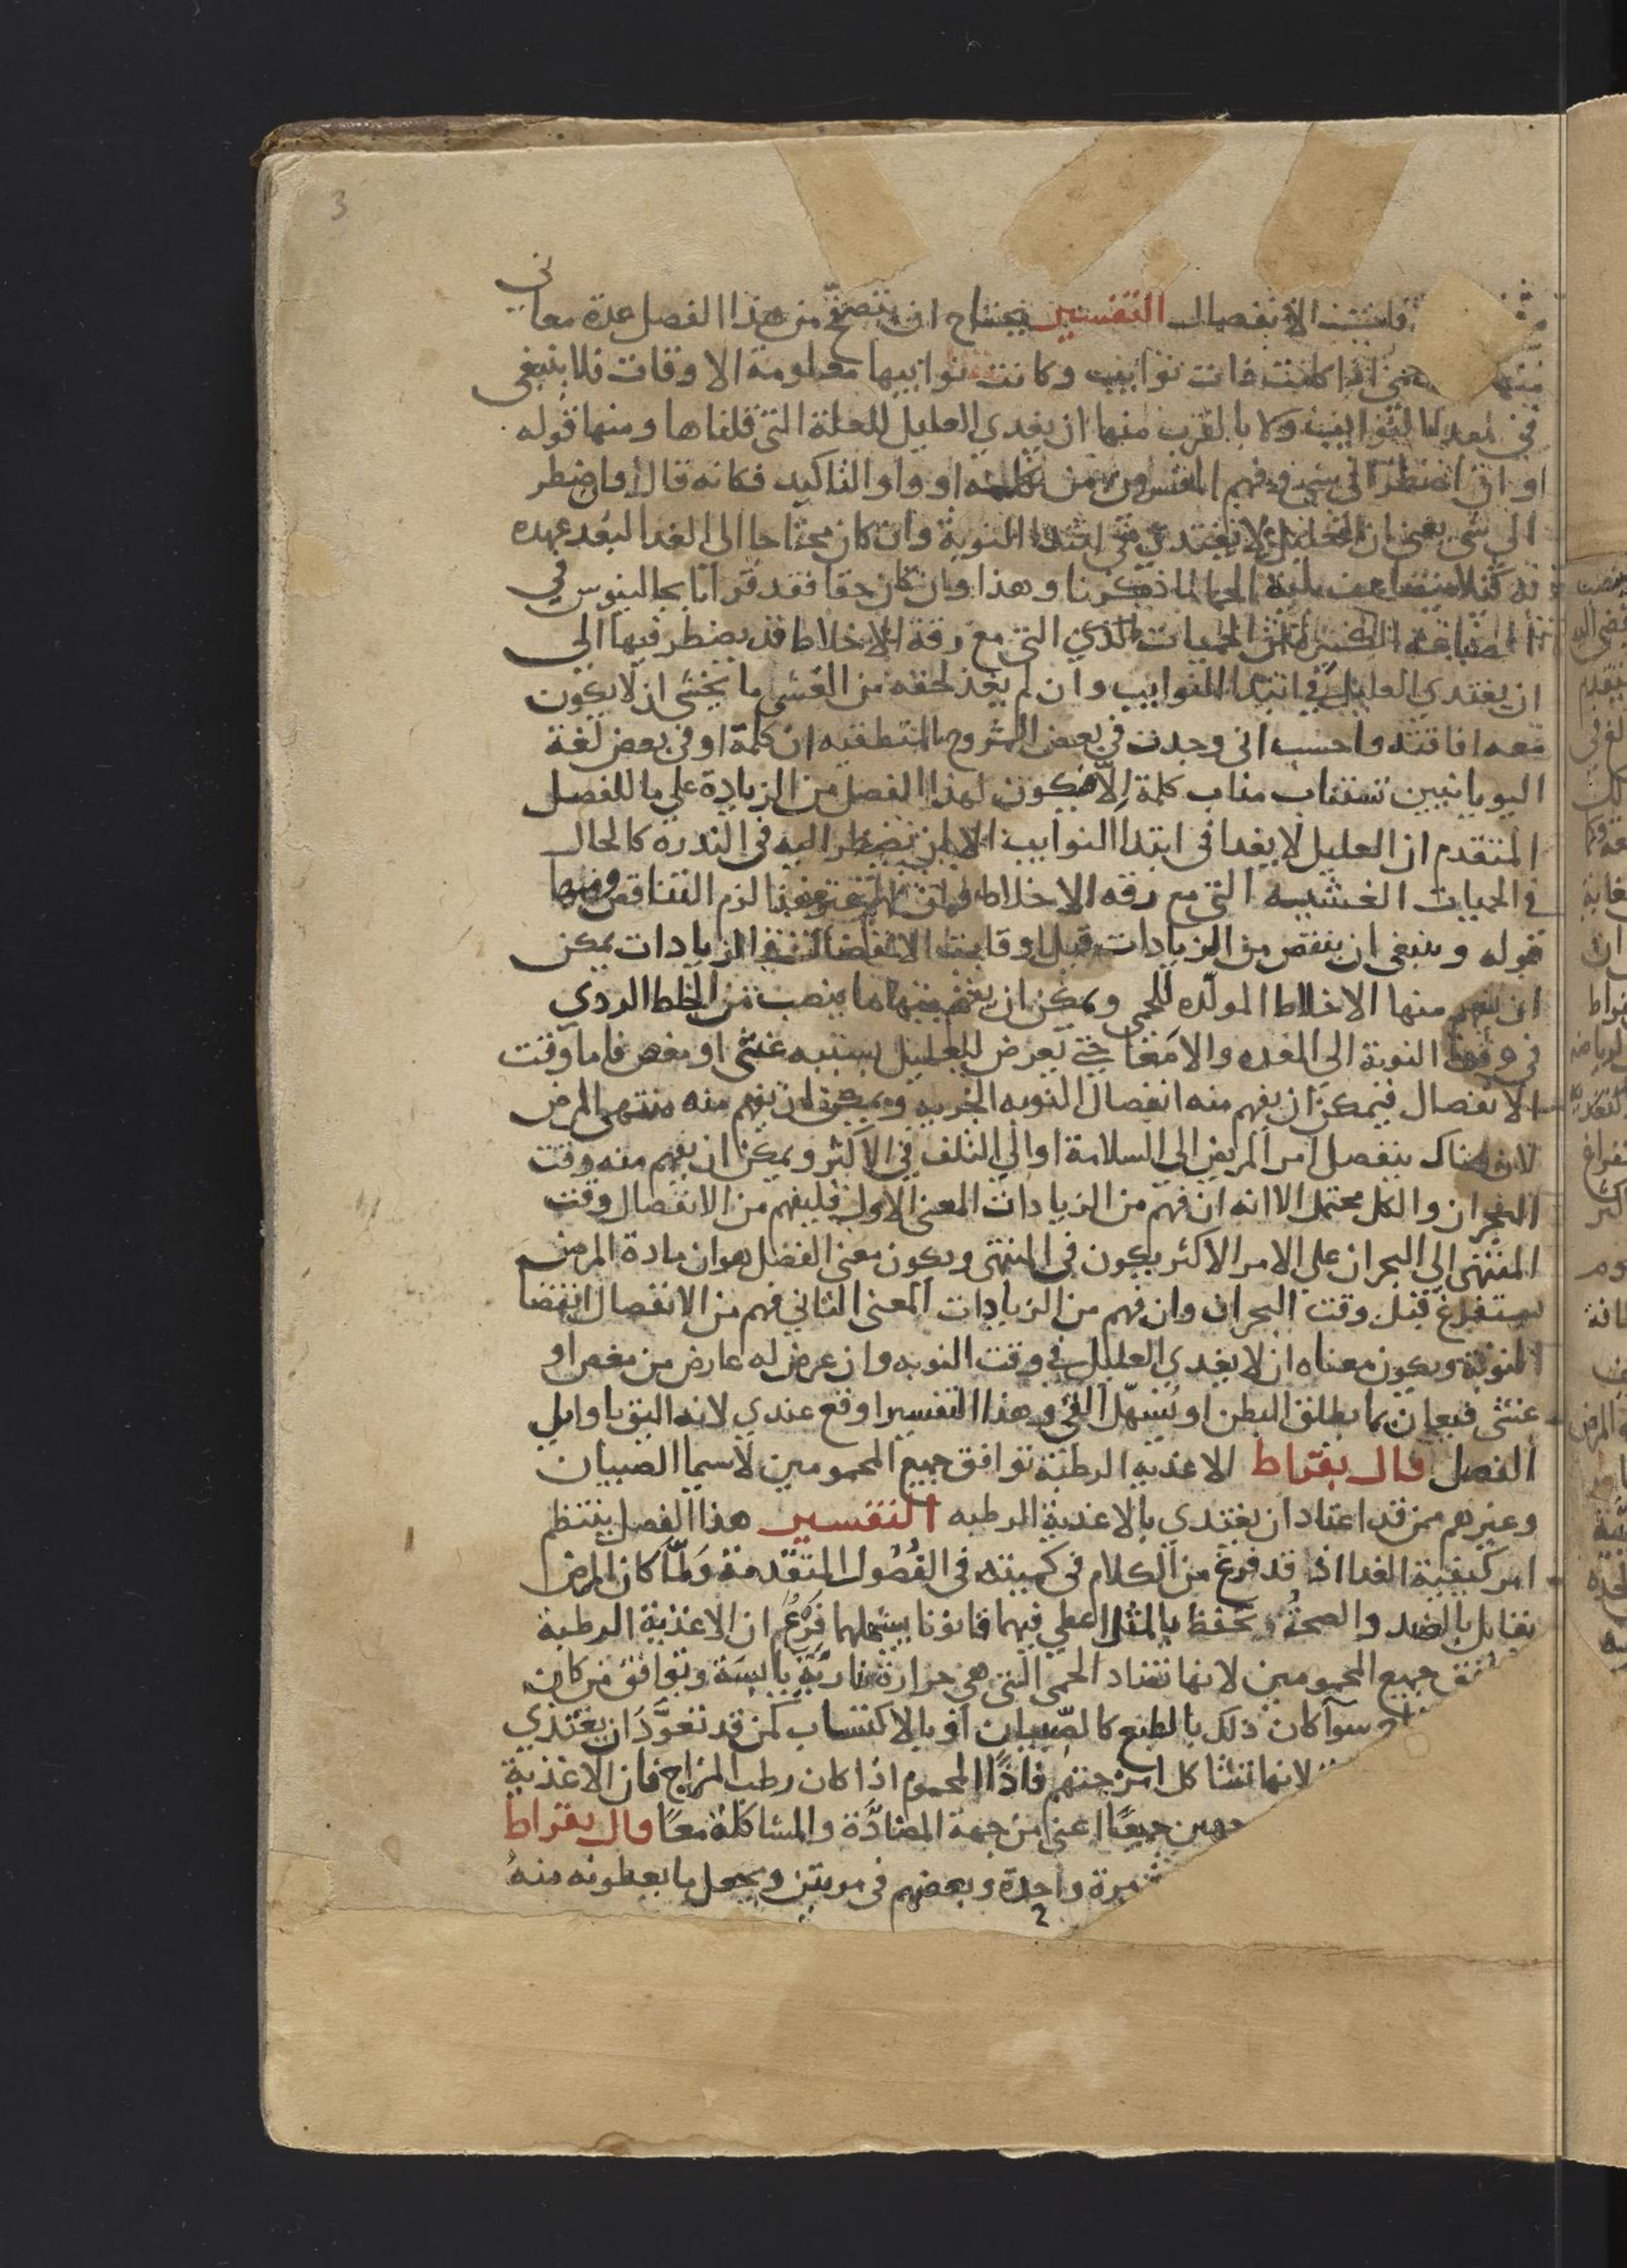 3
الانفصال التفسير يحتاج ان يتصفح من هذا الفصل عدة معاني
منها اذا كانت ذات نوايب وكانت نوايبها معلومة الاوقات فلا ينبغي
في النوايب ولا بالقرب منها ان يغدي العليل للعلة التي قلناها ومنها قوله
او ان اضطر الى شي المفسرون من كلمه او واو التاكيد فكانه قال وان اضطر
الي شي يعني ان العليل لا يغتدي في ابتدا النوبة وان كان محتاجا الى الغدا لبعد عهده
به كيلا الحما لما ذكرنا وهذا وان كان حقا فقد قرانا بجالينوس في
الحميات الذي التي مع رقة الاخلاط قد يضطر فيها الى
ان يغتدي العليل في ابتدا النوايب وان لم يغد لحقه من الغشي ما يخشى ان لا يكون
معه افاقته واحسب اني وجدت في بعض الشروح ان كلمة او في بعض لغة
اليونانيين تستناب مناب كلمة الا فيكون لهذا الفصل من الزيادة علي ما للفصل
المتقدم ان العليل لا يغدا في ابتدا النوايب الا لمن يضطر اليه في الندره كالحال
في الحميات الغشييه التي مع رقه الاخلاط لزم التناقض ومنها
قوله وينبغي ان ينقص من الزيادات قبل اوقات الانفصال الزيادات يمكن
ان يفهم منها الاخلاط المولده للحمى ويمكن ان يفهم منها ما ينصب من الخلط الردي
في وقت النوبة الى المعده والامعا حتى يعرض للعليل بسببه غثي او مغص فاما وقت
الانفصال فيمكن ان يفهم منه انفصال النوبه الجزييه ويمكن ان يفهم منه منتهى المرض
لان هناك ينفصل امر المريض الي السلامة او الي التلف في الاكثر ويمكن ان يفهم منه وقت
البحران والكل محتمل الا انه ان فهم من الزيادات المعنى الاول فليفهم من الانفصال وقت
المنتهى الي البحران علي الامر الاكثر يكون في المنتهى ويكون معنى الفصل هو ان مادة المرض
يستفرغ قبل وقت البحران وان فهم من الزيادات المعنى الثاني فهم من الانفصال انقضا
النوبة ويكون معناه ان لا يغدي العليل في وقت النوبه وان عرض له عارض من مغص او
غثي فيعان بما يطلق البطن او يسهل القي وهذا التفسير اوقع عندي لانه اليق باوايل
الفصل قال بقراط الاغذيه الرطبة توافق جميع المحمومين لاسيما الصبيان
وغيرهم ممن قد اعتاد ان يغتدي بالاغذية الرطبه التفسير هذا الفصل ينتظم
امر كيفية الغدا اذ قد فرغ من الكلام في كميته في الفصول المتقدمة ولما كان المرض
يقابل بالضد والصحة تحفظ بالمثل اعطي فيهما قانونا يشملهما فزعم ان الاغذية الرطبة
جميع المحمومين لانها تضاد الحمى التي هي حرارة نارية يابسة وتوافق من كان
سوآ كان ذلك بالطبع كالصبيان او بالاكتساب كمن قد تعود ان يغتذي
لانها تشاكل امزجتهم فاذا المحموم اذا كان رطب المزاج فان الاغذية
جميعا اعني من جهة المضادة والمشاكلة معا قال بقراط
مرة واحدة وبعضهم في مرتين ويجعل ما يعطونه منه
2